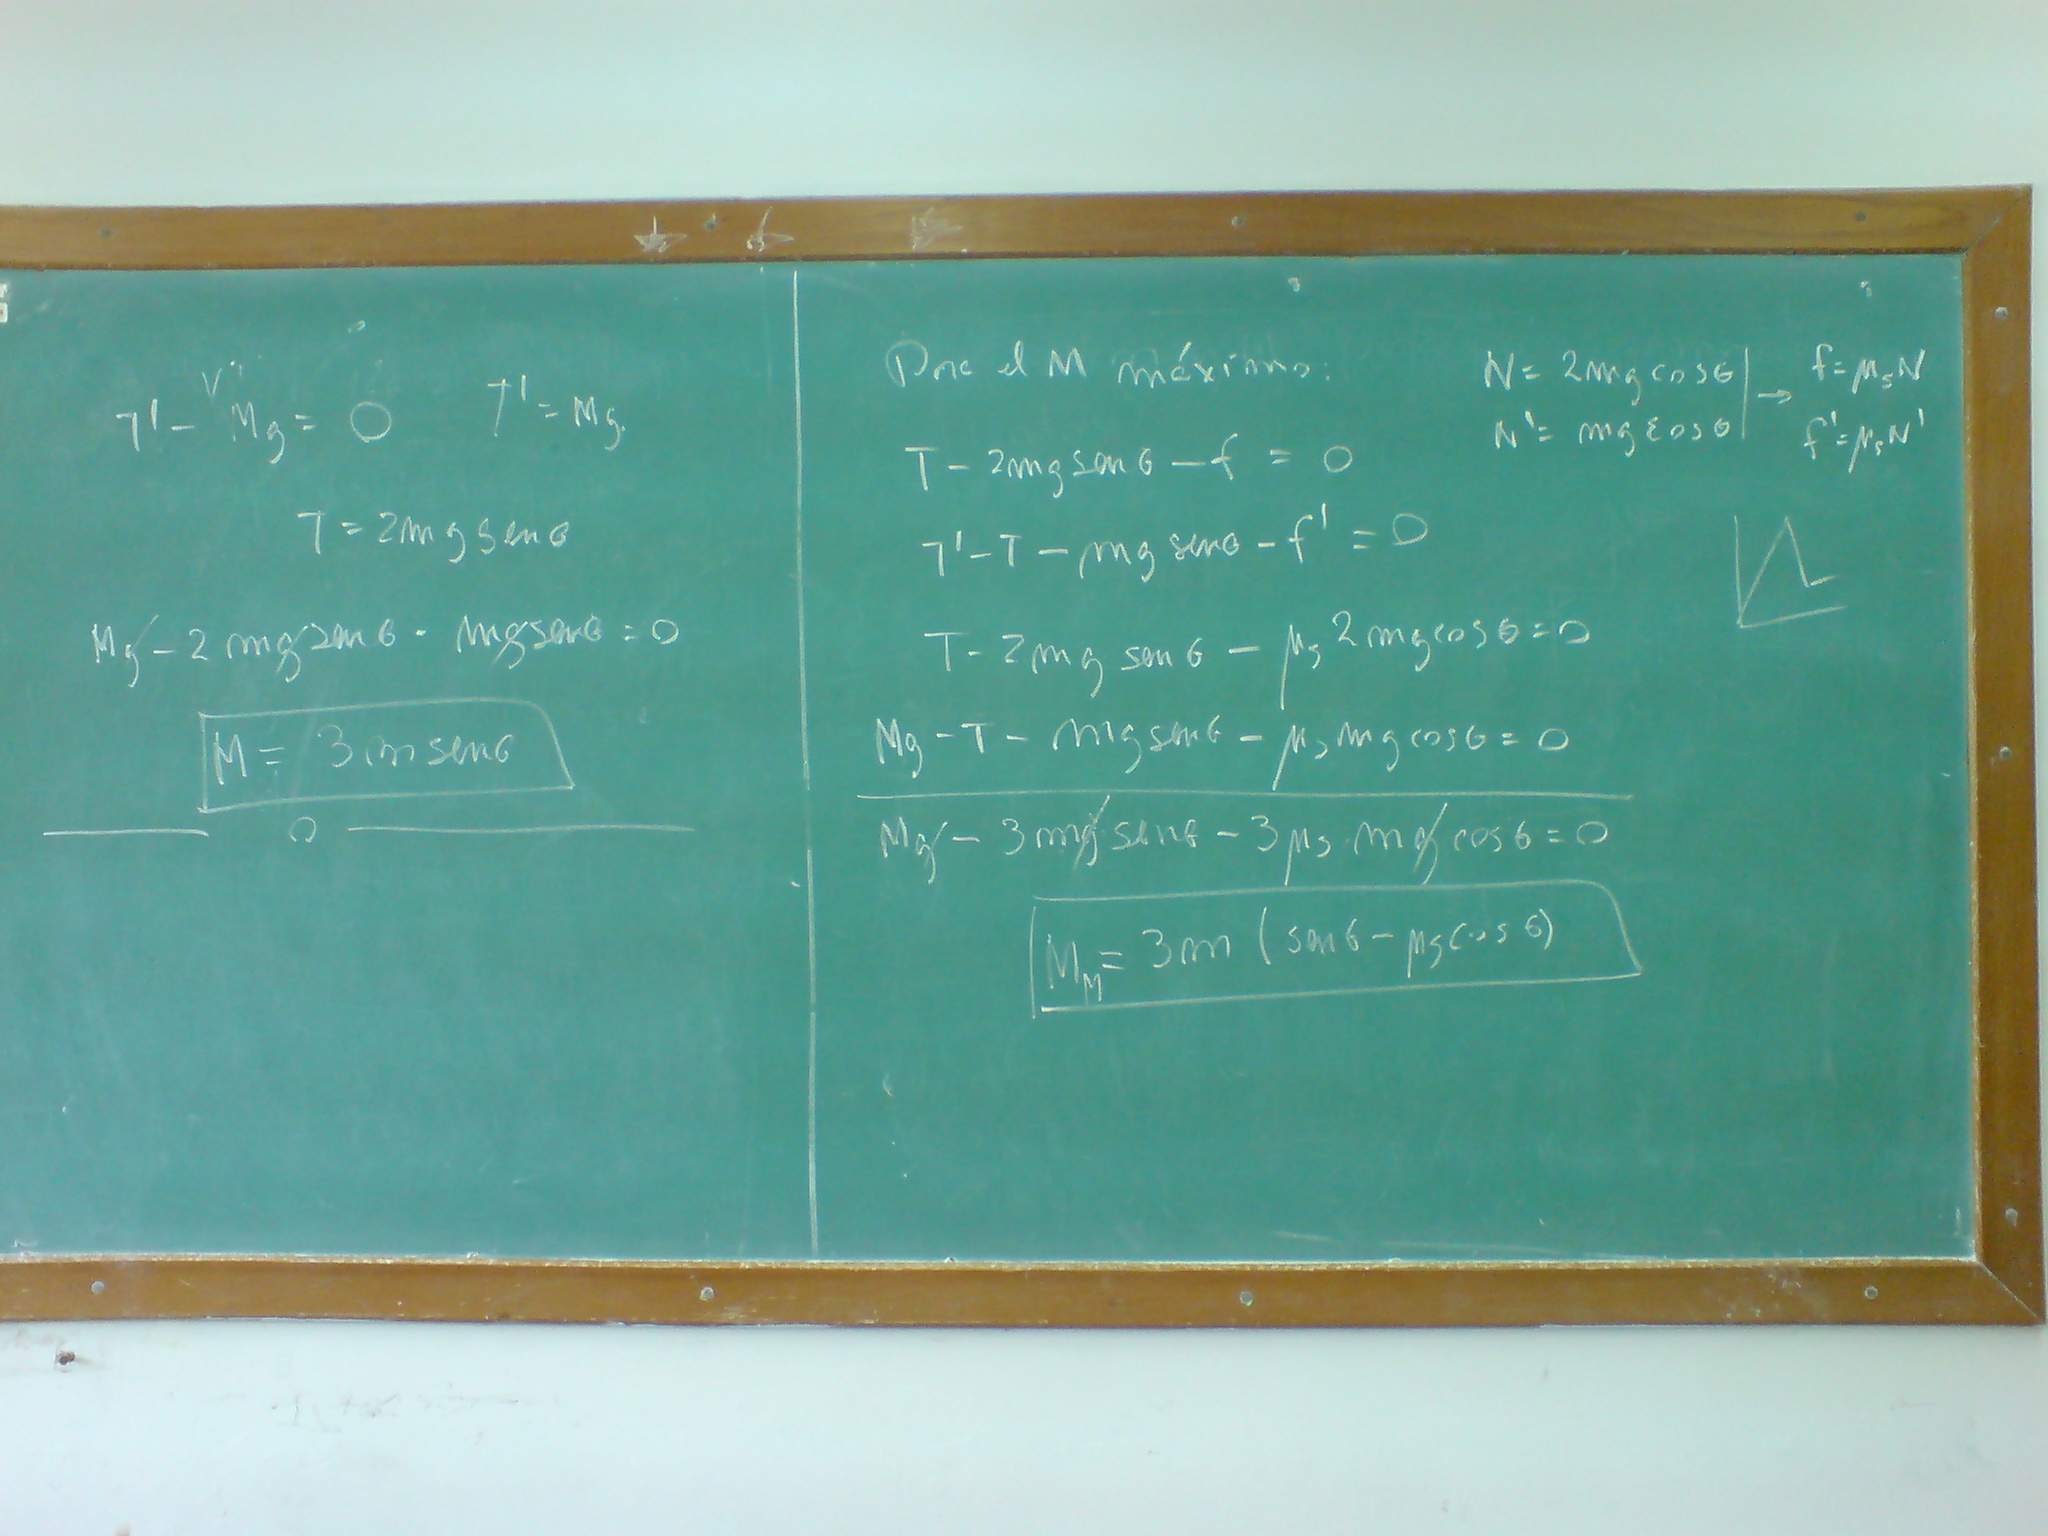 T' - Mg = 0 T' = Mg.
T = 2mg senθ
Mg - 2mg senθ - mg senθ = 0
M = 3m senθ
0
Para el M máximo:
N = 2mg cosθ → f = μsN
N' = mg cosθ f' = μsN'
T - 2mg senθ - f = 0
T' - T - mg senθ - f' = 0
T - 2mg senθ - μs 2mg cosθ = 0
Mg - T - mg senθ - μs mg cosθ = 0
Mg - 3mg senθ - 3μs . mg cosθ = 0
M_M = 3m (senθ - μs cosθ)